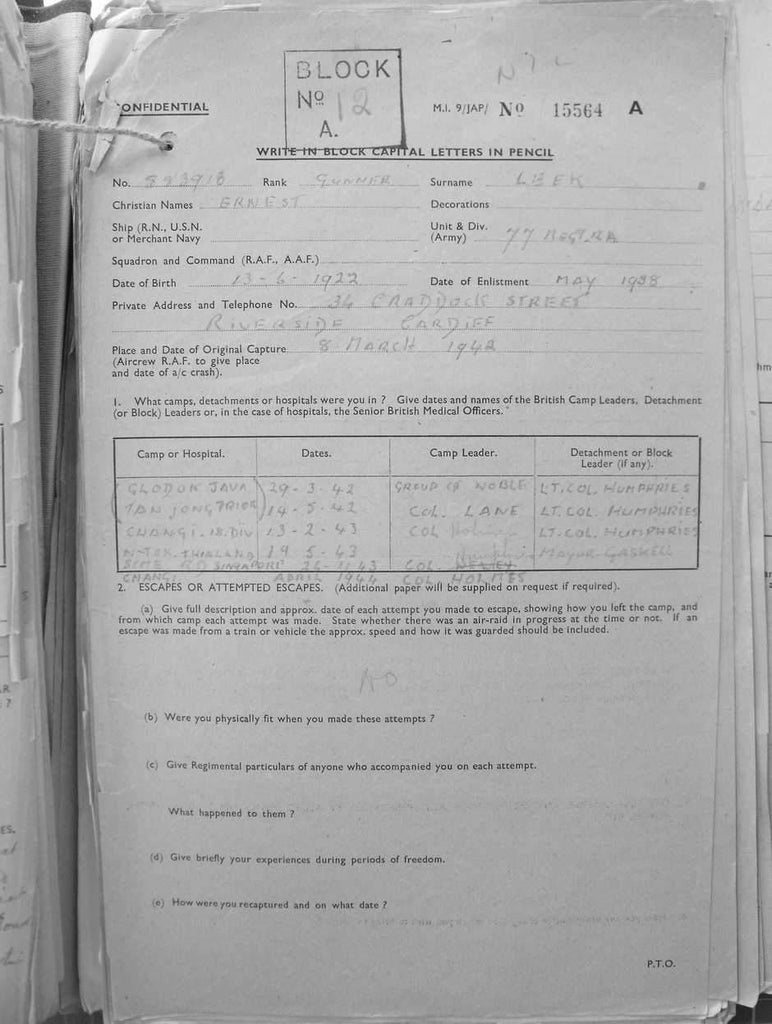 BLOCK
No 12
A.
NIL
CONFIDENTIAL
M.I. 9/JAP/ No 15564 A
WRITE IN BLOCK CAPITAL LETTERS IN PENCIL
No. Rank GUNNER Surname LEEK
Christian Names ERNEST Decorations
Ship (R.N., U.S.N. Unit & Div.
or Merchant Navy (Army) 77 REGT. RA
Squadron and Command (R.A.F., A.A.F.)
Date of Birth 13-6-1922 Date of Enlistment MAY 1938
Private Address and Telephone No. 34 CRADDOCK STREET
RIVERSIDE CARDIFF
Place and Date of Original Capture 8 MARCH 1942
(Aircrew R.A.F. to give place
and date of a/c crash).
1. What camps, detachments or hospitals were you in ? Give dates and names of the British Camp Leaders, Detachment
(or Block) Leaders or, in the case of hospitals, the Senior British Medical Officers.
Camp or Hospital. Dates. Camp Leader. Detachment or Block
Leader (if any).
GLODOK JAVA 29-3-42 GROUP CP NOBLE LT. COL. HUMPHRIES
TANJONG PRIOK 14-5-42 COL. LANE LT. COL. HUMPHRIES
CHANGI. 18. DIV 13-2-43 COL LT. COL. HUMPHRIES
THIALAND 19 5-43 MAYOR GASKELL
SIME RD SINGAPORE 26-11-43 COL.
CHANGI APRIL 1944 COL HOLMES
2. ESCAPES OR ATTEMPTED ESCAPES. (Additional paper will be supplied on request if required).
(a) Give full description and approx. date of each attempt you made to escape, showing how you left the camp, and
from which camp each attempt was made. State whether there was an air-raid in progress at the time or not. If an
escape was made from a train or vehicle the approx. speed and how it was guarded should be included.
NO
(b) Were you physically fit when you made these attempts ?
(c) Give Regimental particulars of anyone who accompanied you on each attempt.
What happened to them ?
(d) Give briefly your experiences during periods of freedom.
(e) How were you recaptured and on what date ?
P.T.O.